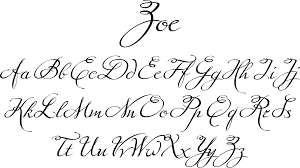 Zoe
Aa Bb Cc Dd Ee Ff Gg Hh Ii Jj
Kk Ll Mm Nn Oo Pp Qq Rr Ss
Tt Uu Vv Ww Xx Yy Zz